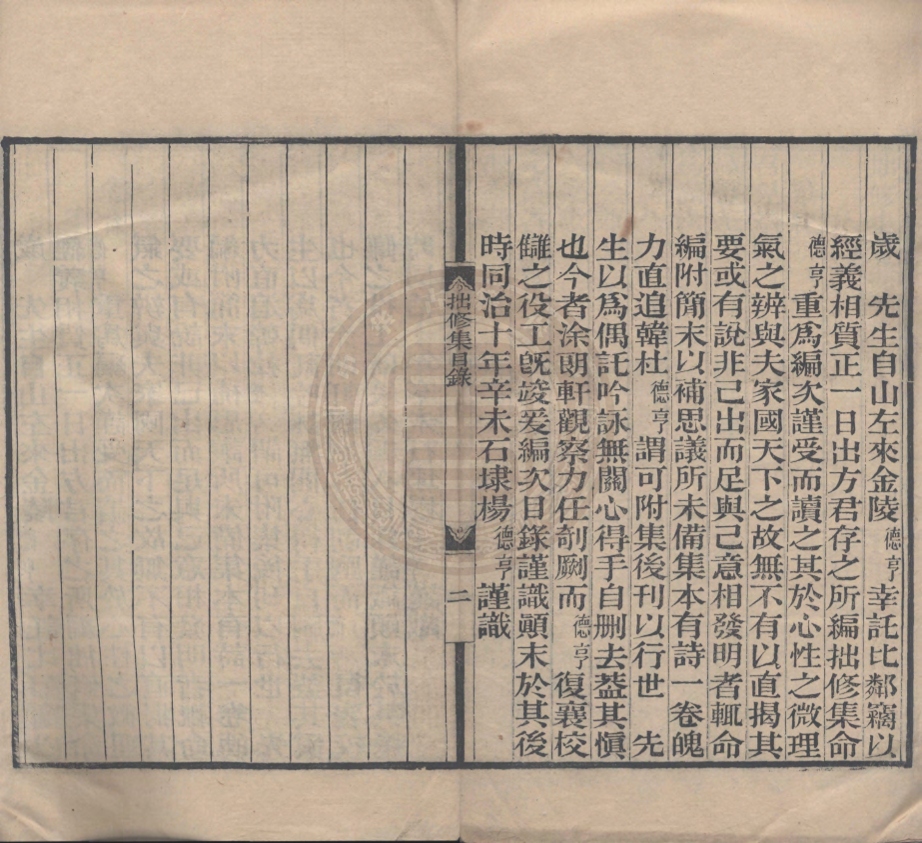 歲　先生自山左來金陵德亨幸託比鄰竊以
經義相質正一日出方君存之所編拙修集命
德亨重爲編次謹受而讀之其於心性之微理
氣之辨與夫家國天下之故無不有以直揭其
要或有說非己出而足與己意相發明者輒命
編附簡末以補思議所未備集本有詩一卷魄
力直追韓杜德亨謂可附集後刊以行世　先
生以爲偶託吟詠無關心得手自删去葢其愼
也今者涂朗軒觀察力任剞劂而德亨復襄校
讎之役工旣竣爰編次目錄謹識顚末於其後
時同治十年辛未石埭楊德亨謹識
拙修集目錄
二